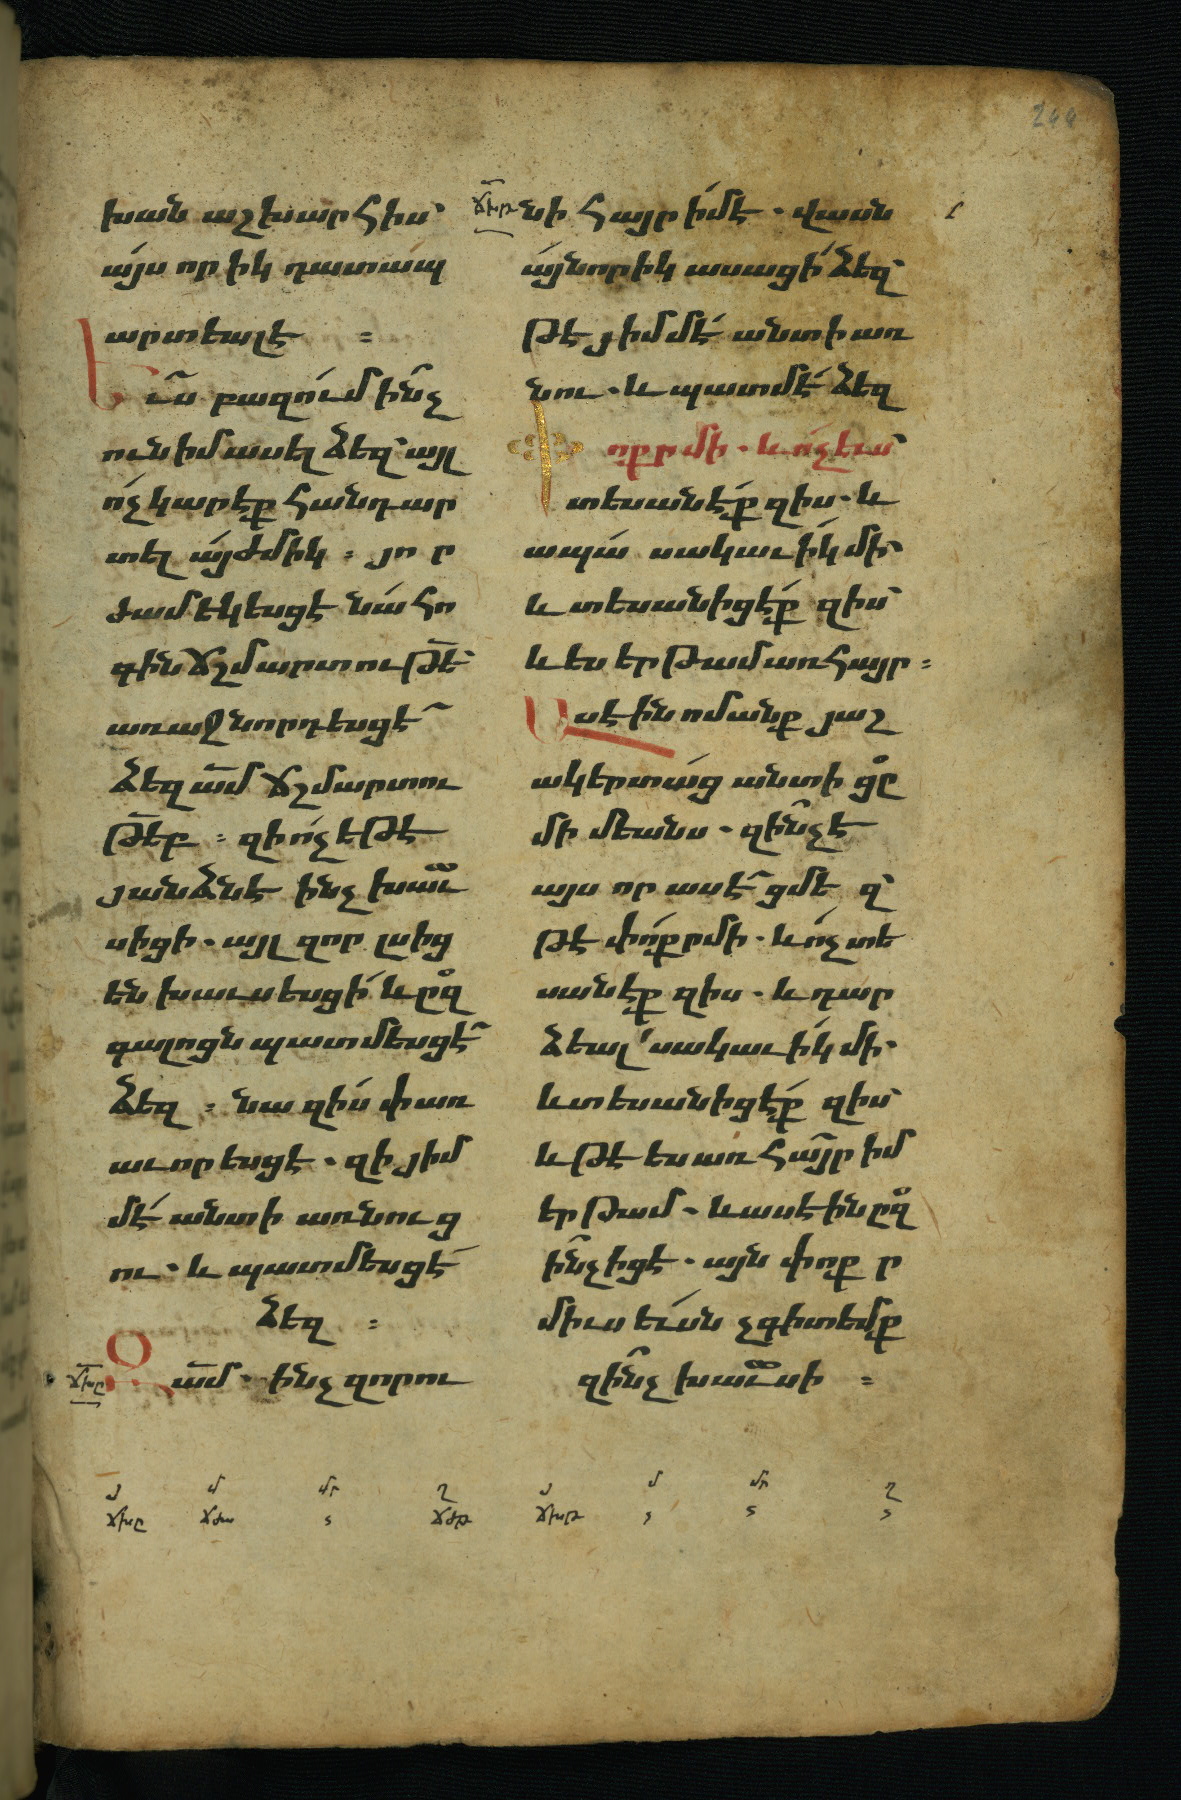 խան աշխարհիս՝
այս որիկ դատապ
արտեալ է ։
Եւս բազում ինչ
ունիմ ասել ձեզ՝ այլ
ոչ կարէք հանդար
տել այժմիկ ։ յո ր
ժամ եկեսցէ նա հո
գին ճշմարտութե՝
առաջնորդեսցէ
ձեզ ամ ճշմարտու
թեբ ։ զի ոչ եթէ
յանձնէ ինչ խաւ
սիցի . այլ զոր լսից
են խաւսեսցի և ըզ
գալոցն պատմեսցէ
ձեզ ։ նա զիս փառ
աւորեսցէ . զի յիմ
մէ անտի առնուց
ու . և պատմեսցէ
ձեզ ։
ճխը Զամ . ինչ զորու
ճխթ նի հայր իմ է . վասն
այնորիկ ասացի ձեզ՝
թէ յիմմէ անտի առ
նու . և պատմէ ձեզ
Փոքր մի . և ոչ ևս՝
տեսանէք զիս . և
ապա սակաւիկ մի՝
և տեսանիցէք զիս՝
և ես երթամ առ հայր ։
Ասէին ոմանք յաշ
ակերտաց անտի ցը
միմեանս . զինչ է
այս որ ասէ ցմե զ՝
թէ փոքր մի . և ոչ տե
սանէք զիս . և դար
ձեալ՝ սակաւիկ մի .
և տեսանիցէք զիս՝
և թէ ես առ հայր իմ
երթամ . և ասէին ըզ
ինչ իցէ . այն փոք ր
միւս ևսն չգիտեմք
զինչ խաւսի ։
յ մ մր ղ յ մ մր ղ
ճխը ճժա ճժթ ճխթ